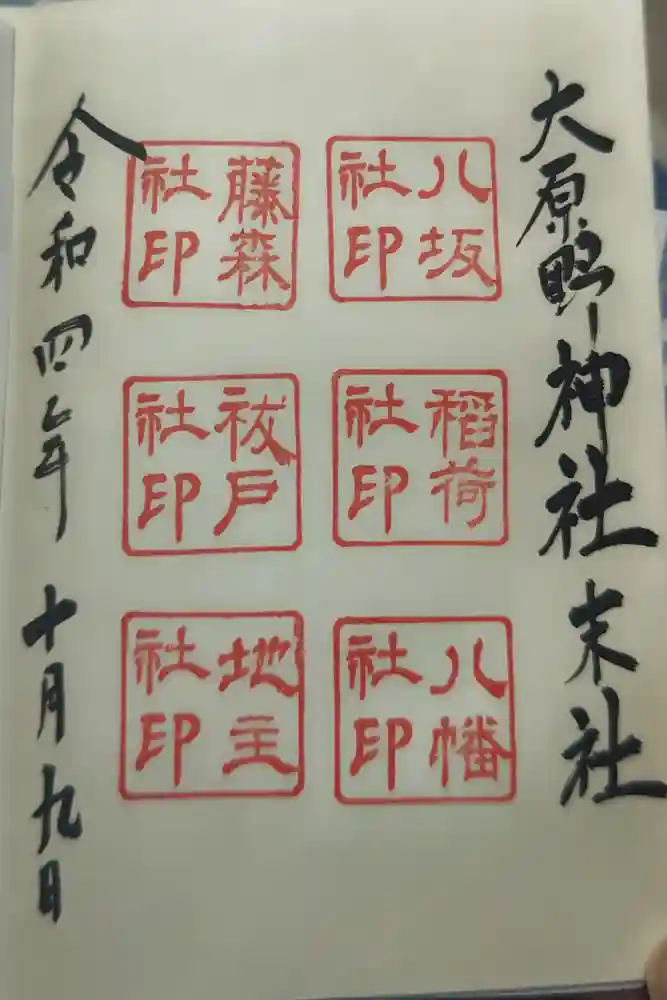 大原野神社 末社
八坂
社印
稲荷
社印
八幡
社印
藤森
社印
祓戸
社印
地主
社印
令和四年 十月九日